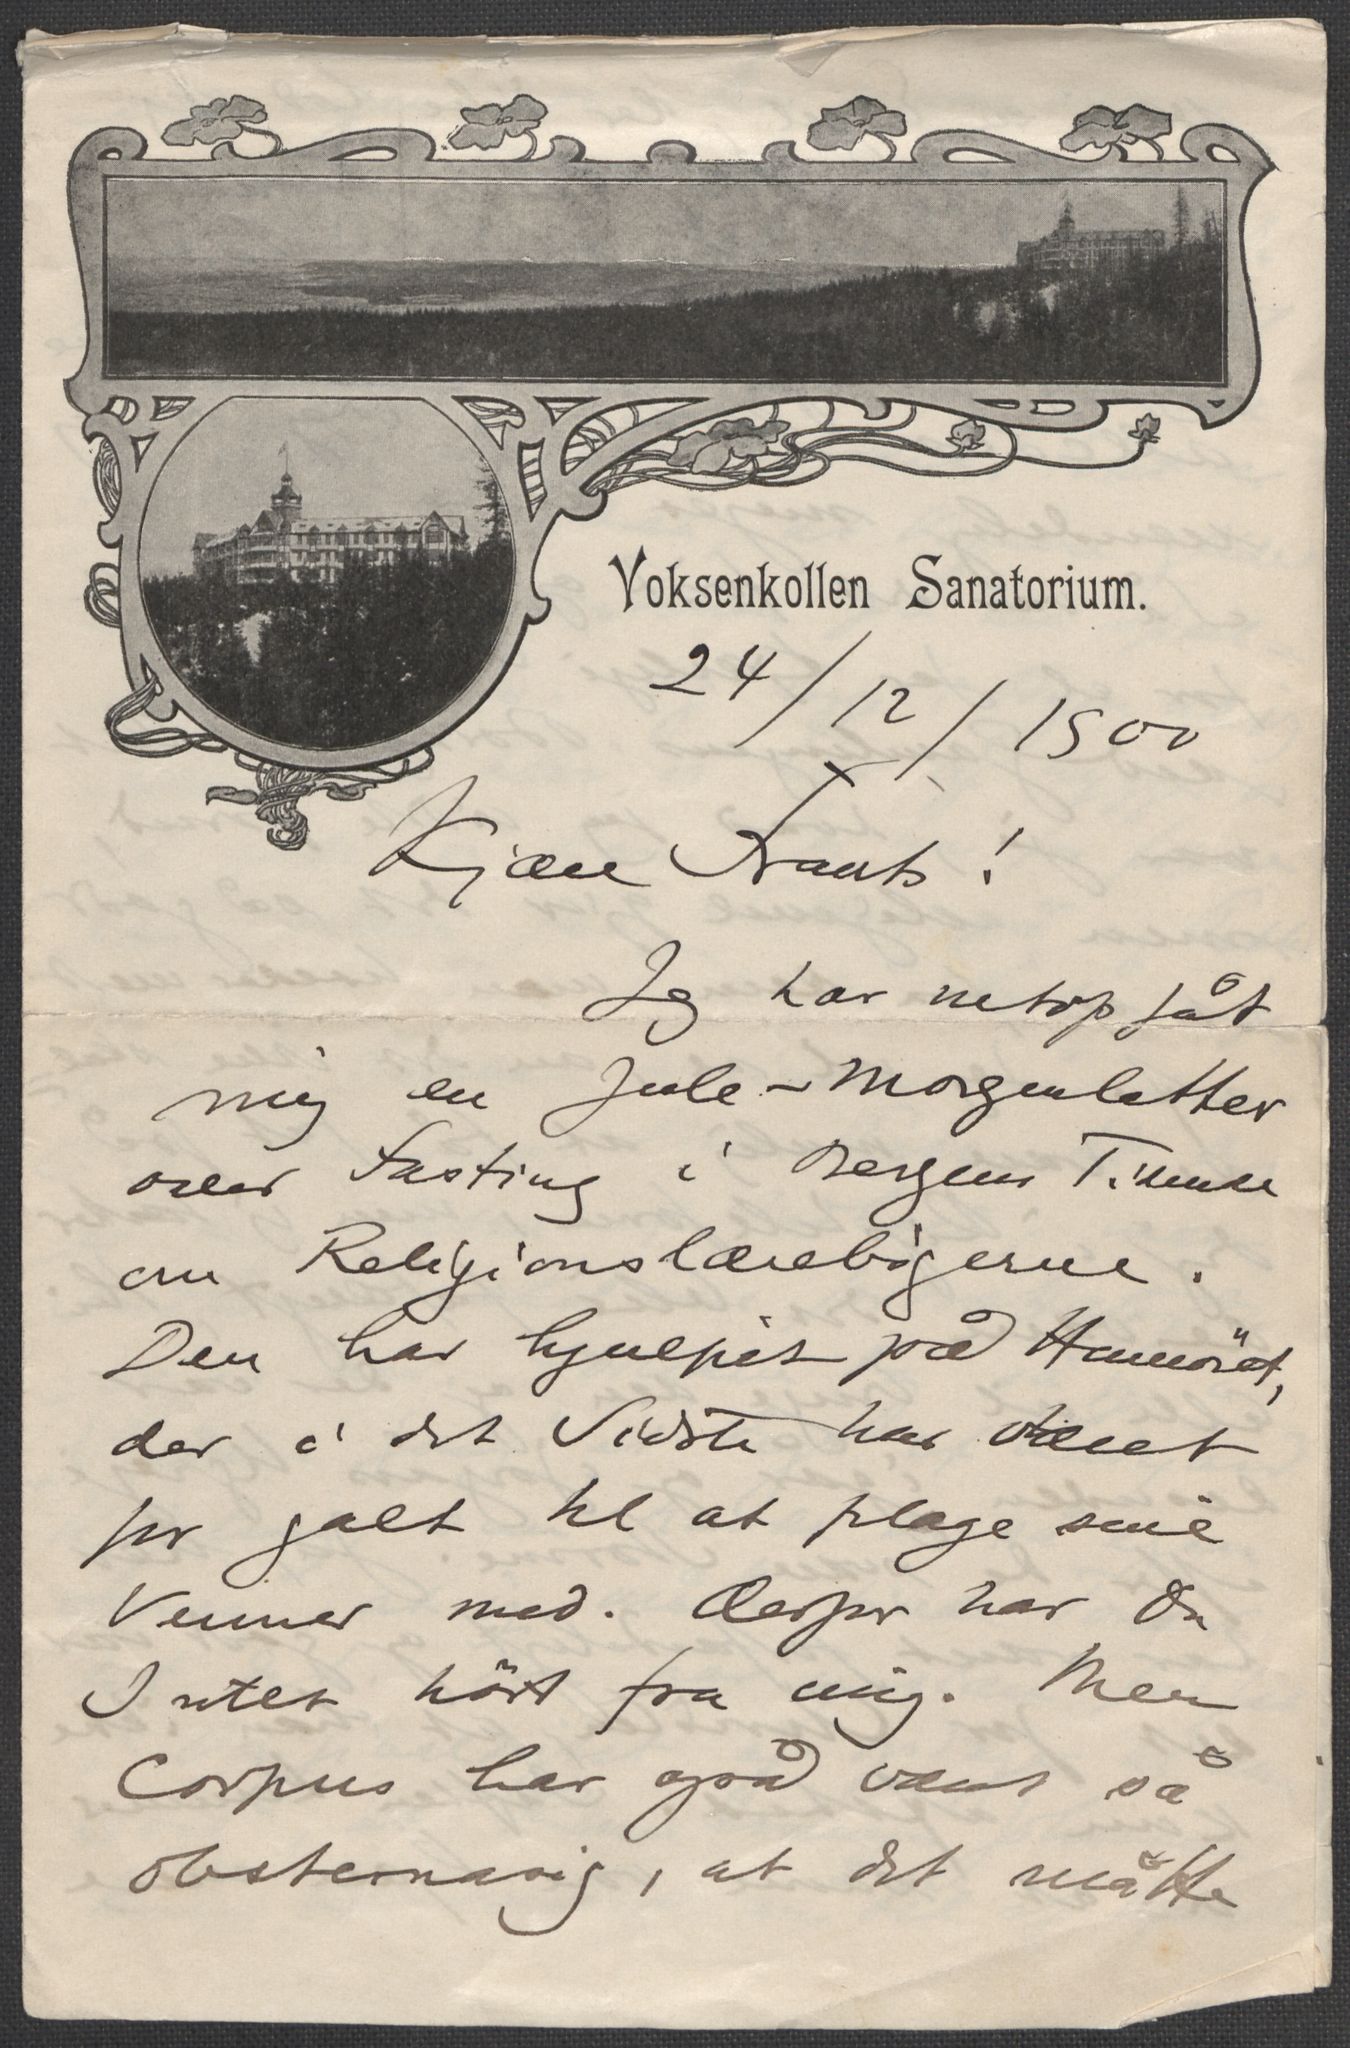 Voksenkollen Sanatorium.
24/12/1900
Kjære Frants!
Jeg har netop fåt
mig en Jule-Morgenlatter
over Fasting i Bergens Tidende
om Religionslærebøgerne.
Den har hjulpet på Humöret,
der i det Sidste har været
for galt til at plage sine
Venner med. Derfor har Du
Intet hört fra mig. Men
Corpus har også været så
obsternasig, at det måtte